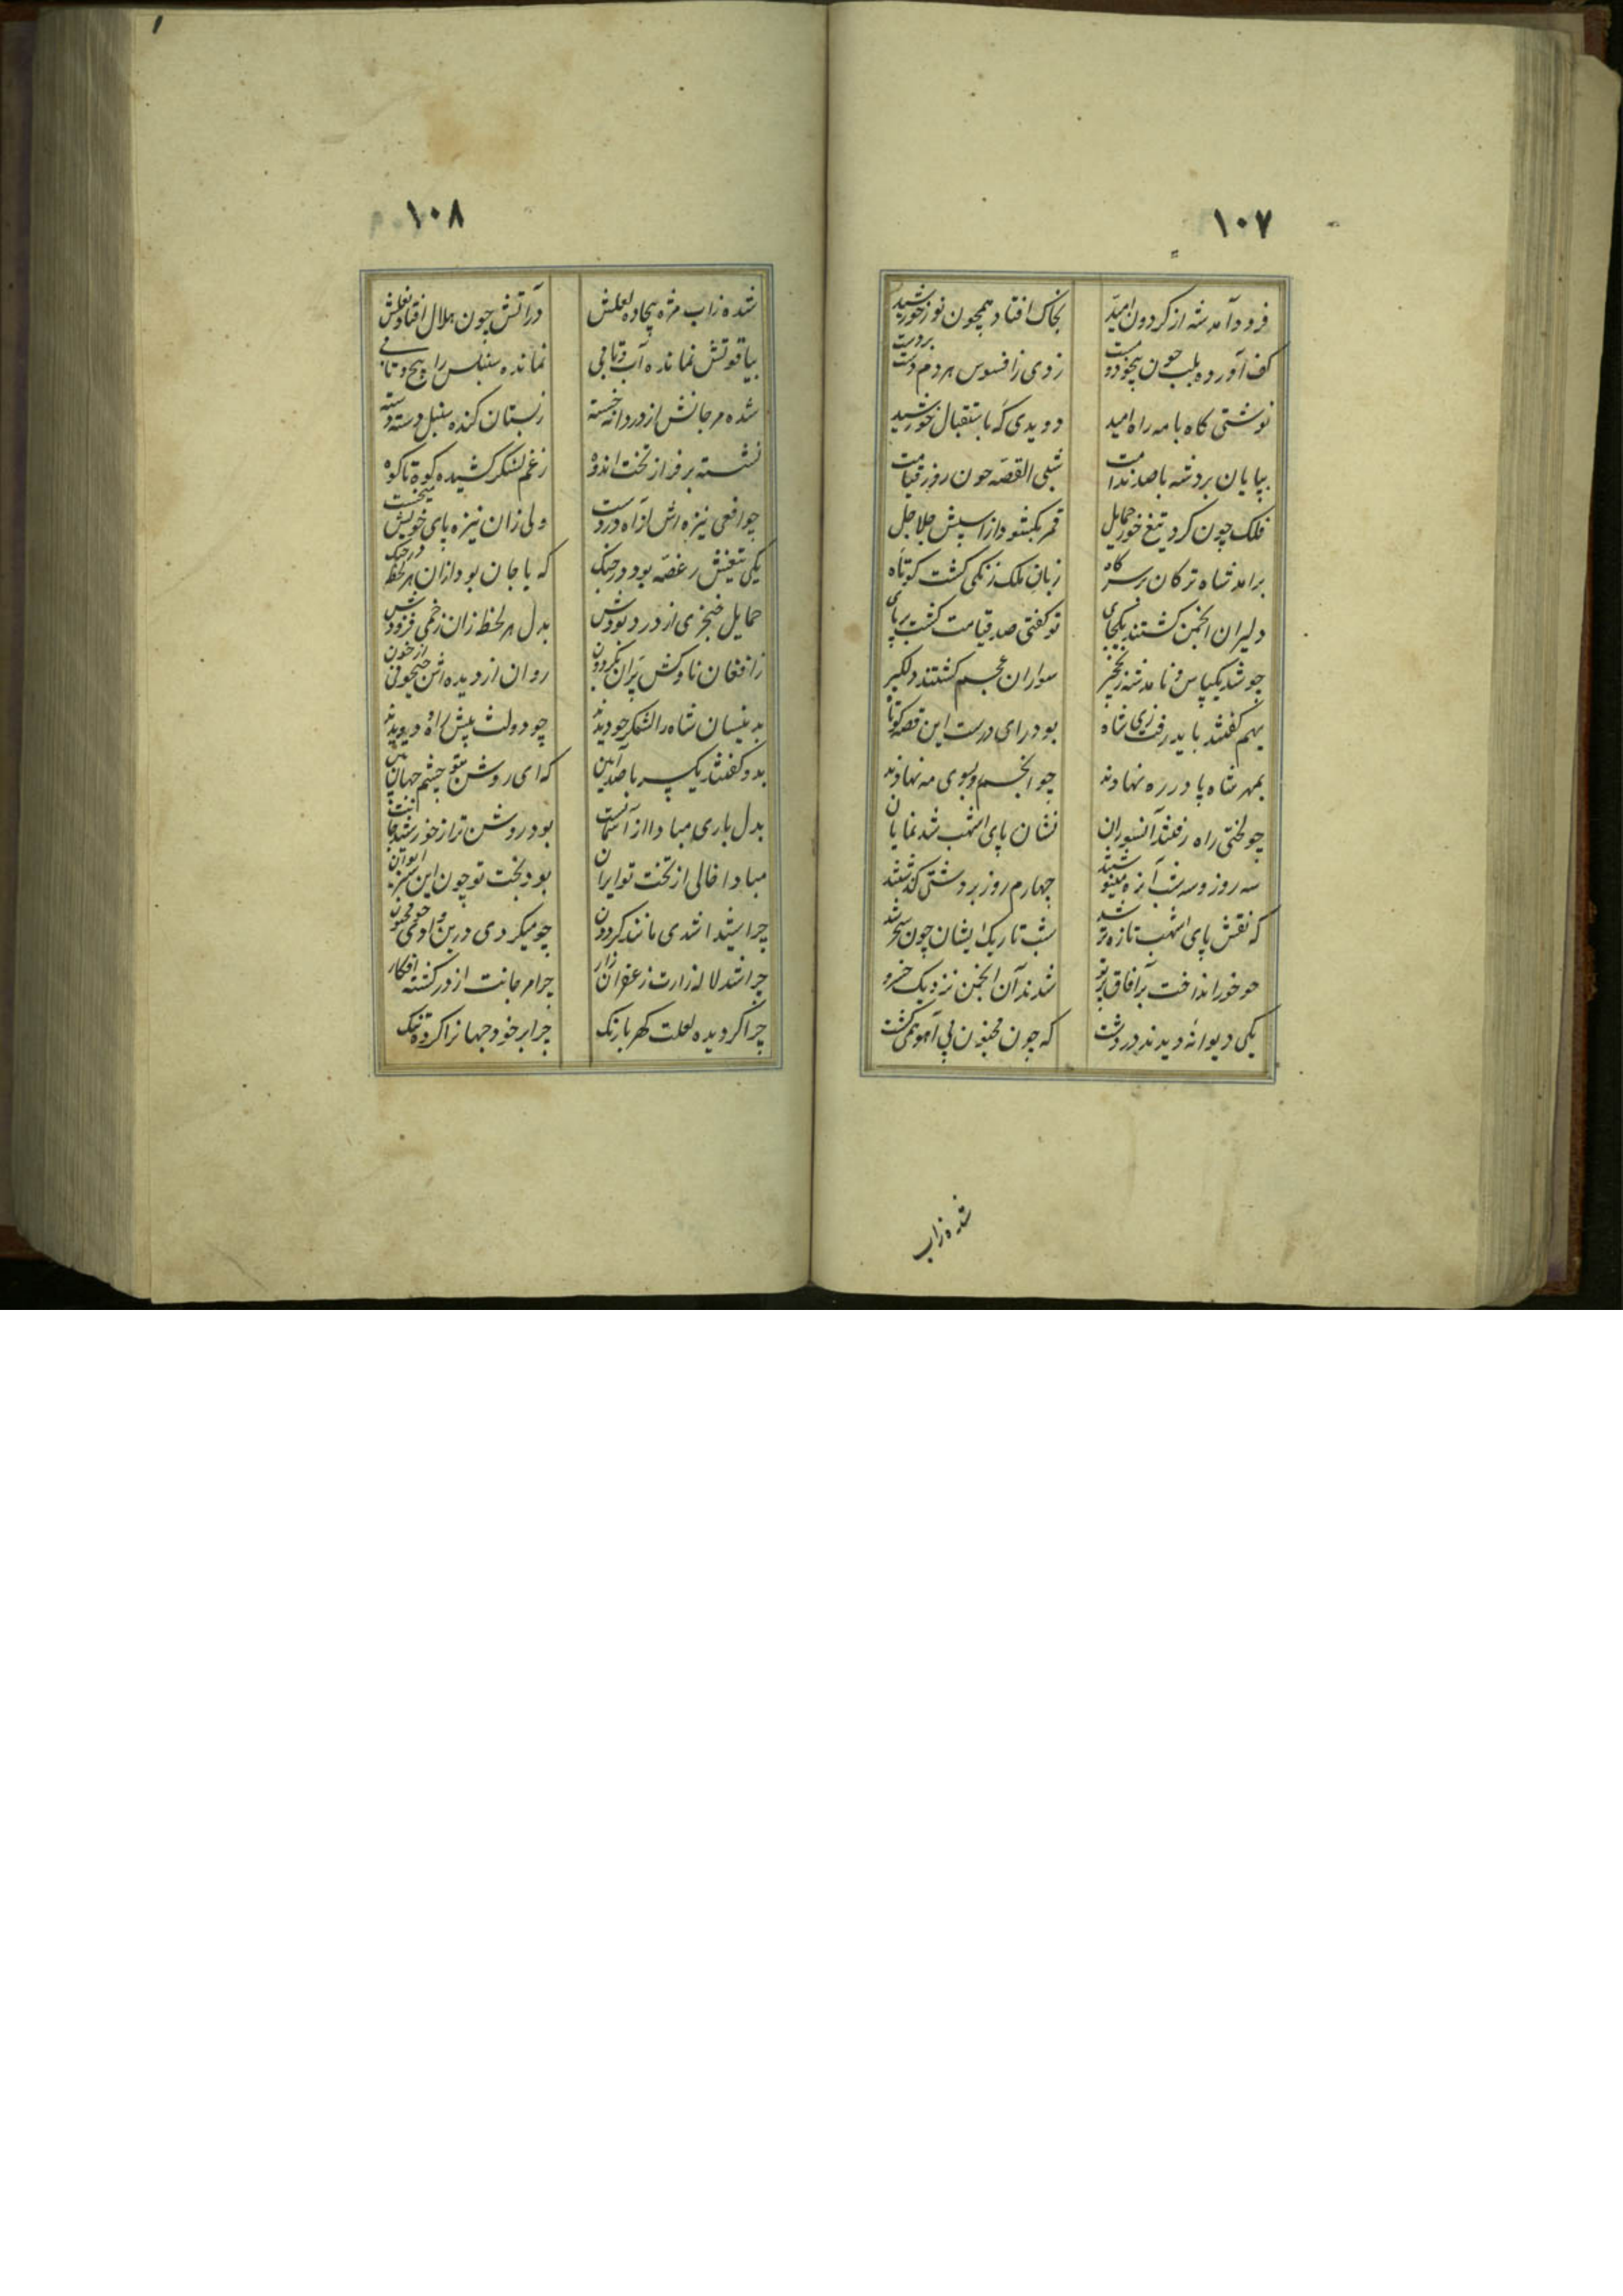 ۱۰۷
فرود آمد شه از گردون امید بخاک افتاد همچون نور خورشید
کف آورده بلب چون بیخود مست زدی از افسوس هر دم دست بر دست
نوشتی گاه با مه راه امید دویدی گه باستقبال خورشید
بپایان برد شه با صد ندامت شبی القصه چون روز قیامت
فلک چون کرد تیغ خور حمایل قمر بگشود از اسپش جلاجل
برامد شاه ترکان بر سر گاه زبان ملک زنگی گشت کوتاه
دلیران انجمن گشتند یکجای تو گفتی صد قیامت گشت بر پای
چو شد یکپاس و نامد شه ز نخجیر سواران عجم گشتند دلگیر
بهم گفتند باید رفت زی شاه بود رای درست این قصه کوتاه
بمهر شاه پا در ره نهادند چو انجم رو بسوی مه نهادند
چو لختی راه رفتند آنسواران نشان پای اشهب شد نمایان
سه روز و سه شب آن ره مینوشتند چهارم روز بر دشتی گذشتند
که نقش پای اشهب تازه تر شد شب تاریک ایشان چون سحر شد
چو خور انداخت بر آفاق پرتو شدند آن انجمن نزدیک خسرو
یکی دیوانه دیدند در دشت که چون مجنون پی آهو همی گشت
شده زاب
۱۰۸
شده زاب مژه بیجاده لعلش در آتش چون هلال افتاده نعلش
بیاقوتش نمانده آب و تابی نمانده سنبلس را پیچ و تابی
شده مرجانش از دردانه خسته ز بستان کنده سنبل دسته دسته
نشسته بر فراز تخت اندوه ز غم لشکر کشیده کوه تا کوه
چو افعی نیزه اش از آه در دست ولی زان نیزه پای خویش میخست
یکی تیغش ز غصه بود در چنگ که با جان بود ازان هر لحظه در جنگ
حمایل خنجری از درد بودش بدل هر لحظه زان زخمی فزودش
ز افغان ناوکش پران بگردون روان از دیده اش جیحونی از خون
بدینسان شاه را لشکر چو دیدند چو دولت پیش او در ره دویدند
بدو گفتند یکسر با صد آئین که ای روشن بتو چشم جهان بین
بدل باری مبادا از آسمانت بود روشن تر از خورشید جانت
مبادا خالی از تخت تو ایران بود بخت تو چون این سبز ایوان
چرا شیدا شدی مانند گردون چو میگردی درین وادی چو مجنون
چرا شد لاله زارت زعفران زار چرا مرجانت از در گشته افکار
چرا گردیده لعلت کهربا رنگ چرا بر خود جهانرا کرده تنگ